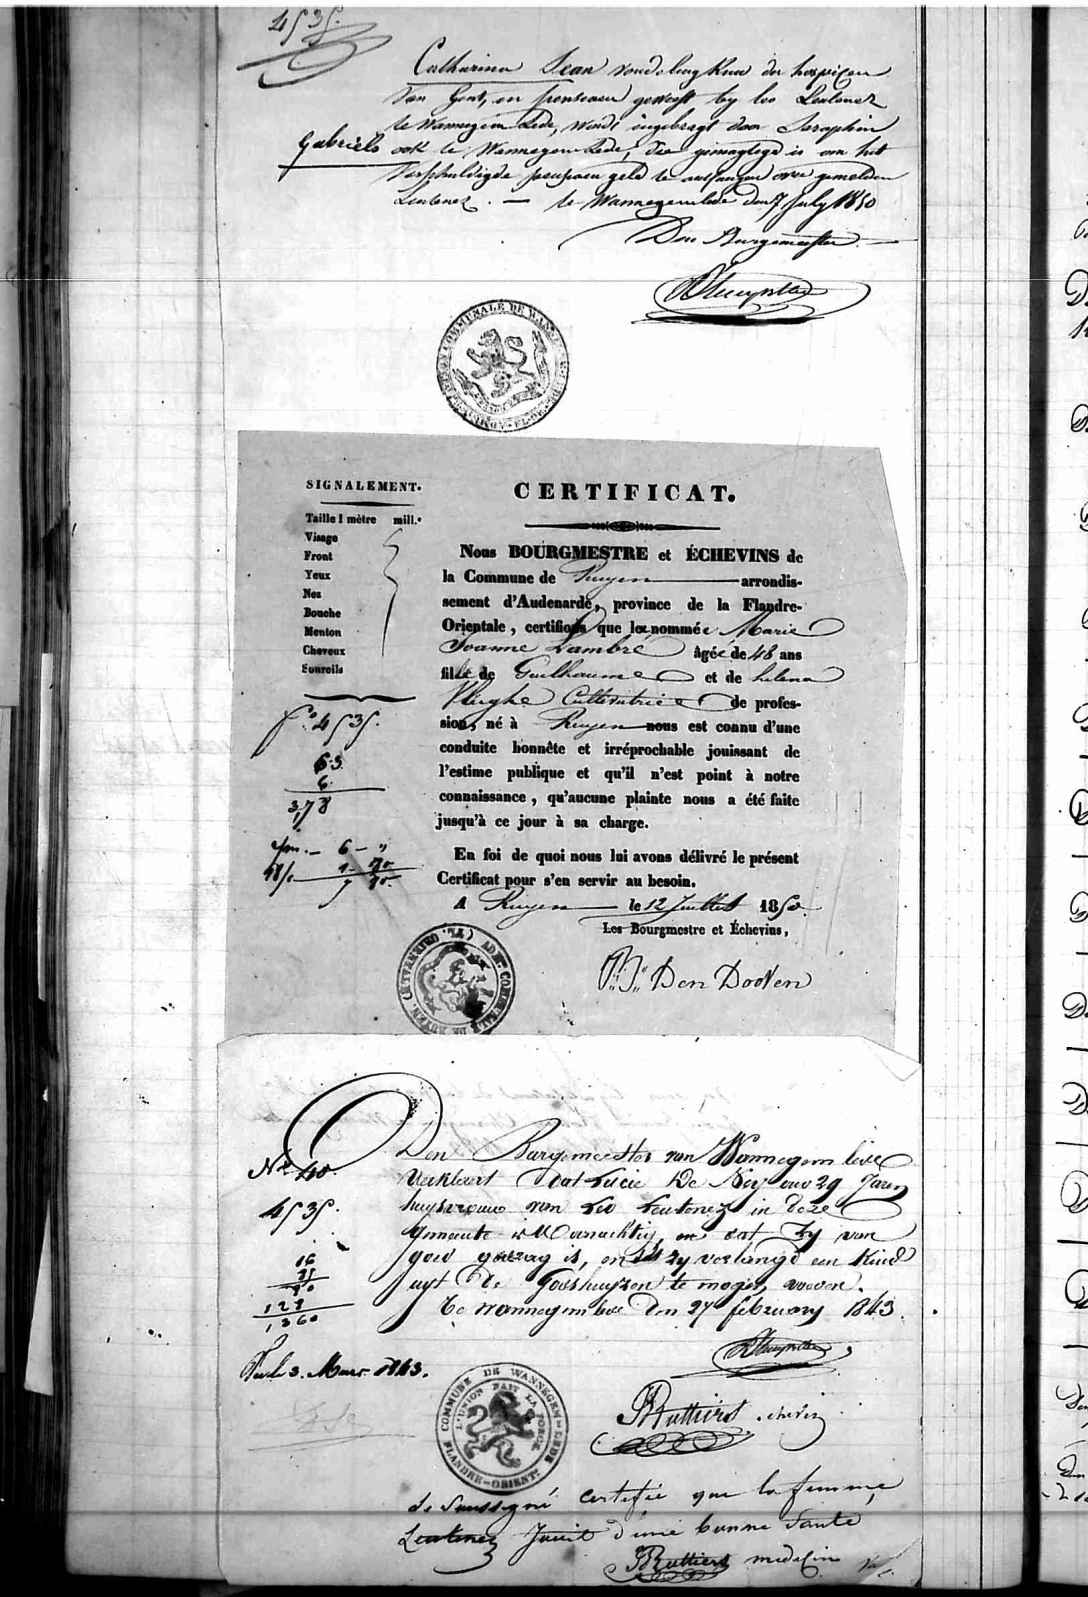 4535.
Catharina Jean vondelingknn der hospicen
van Gent, en pensioen geweest by Leo Leutenez
te Wannegem Lede, wordt ingebragt door Seraphin
Gabriels ook te Wannegem Lede, die gemagtigd is om het
verschuldigde pensioen geld te ontfangen over gemelden
Leutenez. — te Wannegemlede den 7 July 1850
Den Burgemeester
COMMUNALE DE WANNEGEM
SIGNALEMENT.
Taille 1 mètre mill.
Visage
Front
Yeux
Nes
Bouche
Menton
Cheveux
Sourcils
fo. 4535.
63
6
3,78
6 - "
1 - 70
7 70
CERTIFICAT.
Nous BOURGMESTRE et ÉCHEVINS de
la Commune de Ruyen arrondis-
sement d'Audenarde, province de la Flandre-
Orientale, certifions que la nommée Marie
Joanne Lambré âgée de 48 ans
fille de Guilhaume et de helena
Vlieghe Cultivatrice de profes-
sion, né à Ruyen nous est connu d'une
conduite honnête et irréprochable jouissant de
l'estime publique et qu'il n'est point à notre
connaissance, qu'aucune plainte nous a été faite
jusqu'à ce jour à sa charge.
En foi de quoi nous lui avons délivré le présent
Certificat pour s'en servir au besoin.
A Ruyen le 12 Juillet 1850.
Les Bourgmestre et Échevins,
Den Dooven
ADMon COMMUNALE DE RUYEN
No 40.
4535.
16
128
1360
Den Burgemeester van Wannegem lede
verklaert dat Lucie De Ney oud 29 Jaren
huysvrouw van Leo Leutenez in deze
gmeente is woonachtig, en dat zy van
goed gedrag is, en dat zy verlangd een kind
uyt de Godshuyzen te mogen voeden.
te wannegem lede den 27 february 1843.
3. Mars 1843.
COMMUNE DE WANNEGEM-LEDE
L'UNION FAIT LA FORCE
FLANDRE-ORIENTe
Ruttiers echevin
le Soussigné certifie que la femme
Leutenez Jouit d'une bonne Santé
Ruttiers medecin